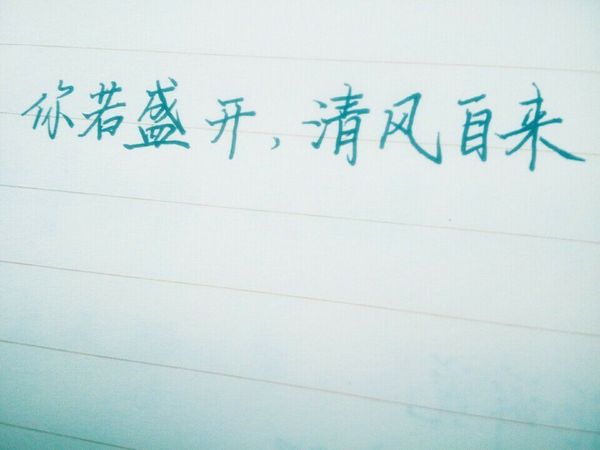 你若盛开,清风自来